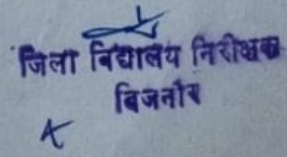 जिला विद्यालय निरीक्षक
बिजनौर